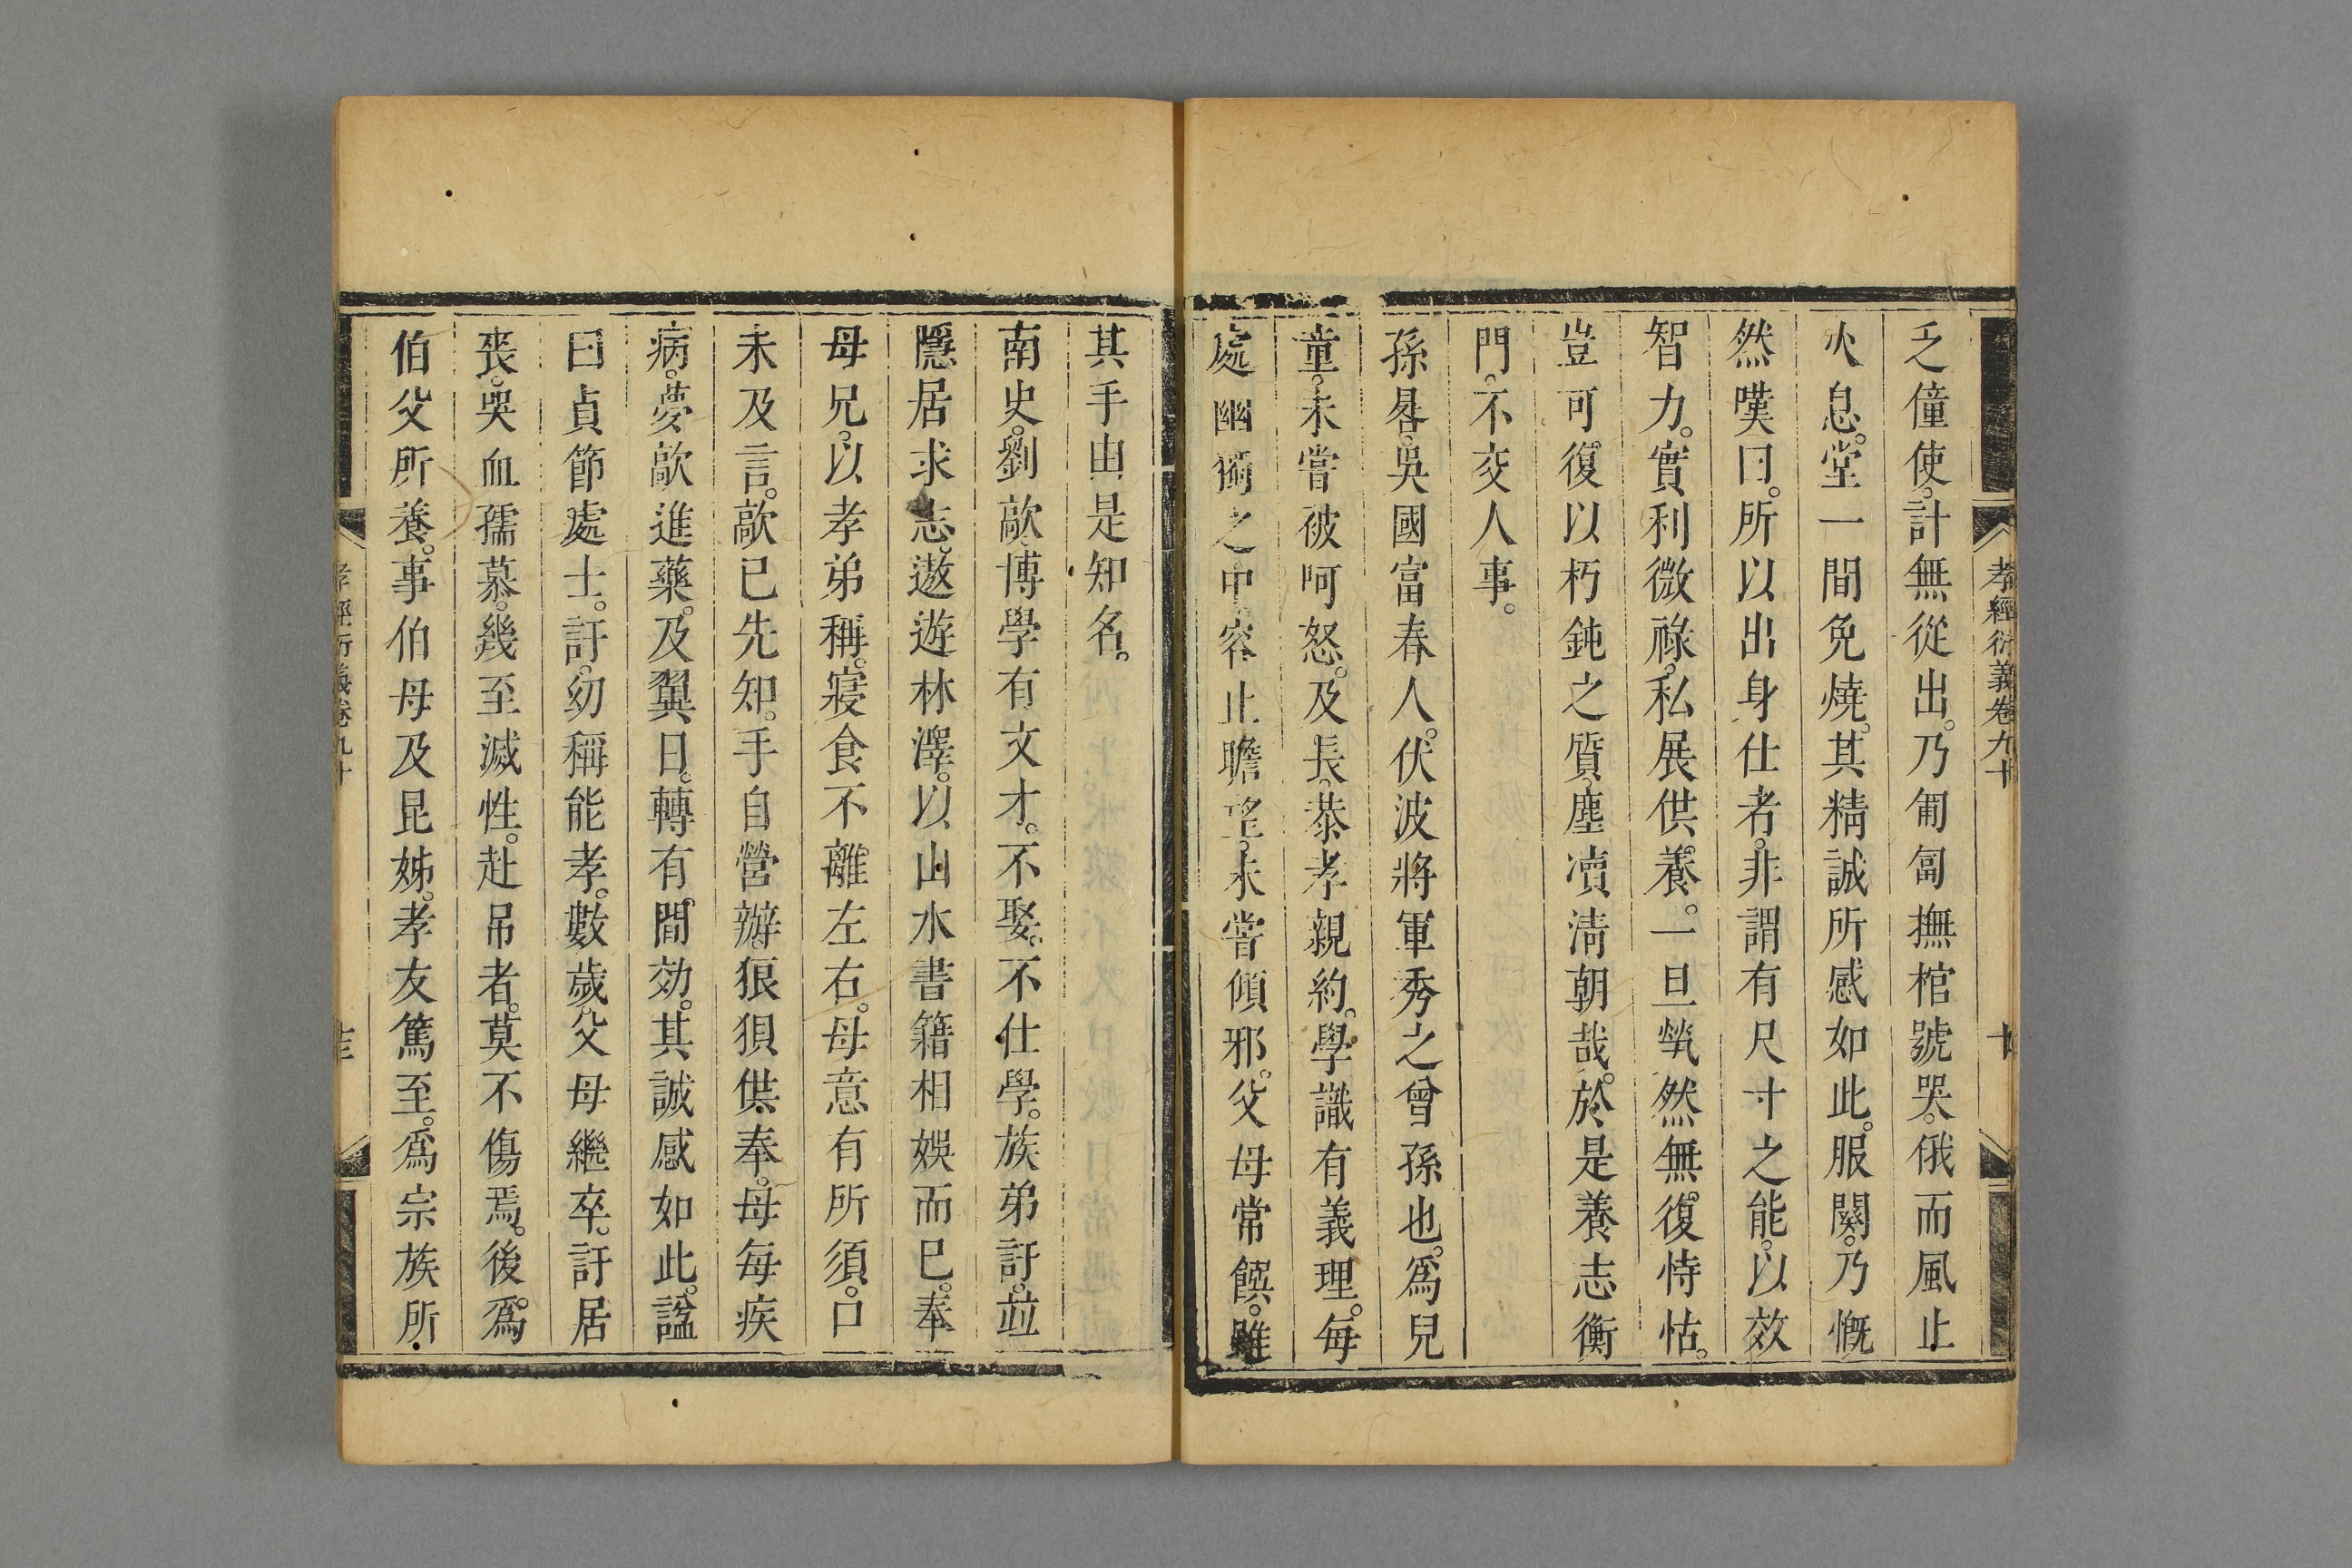 孝經衍義卷九十
十
乏僮使。計無從出。乃匍匐撫棺號哭。俄而風止
火息。堂一間免燒。其精誠所感如此。服闋。乃慨
然嘆曰。所以出身仕者。非謂有尺寸之能。以效
智力。實利微祿。私展供養。一旦煢然無復恃怙。
豈可復以朽鈍之質。塵凟清朝哉。於是養志衡
門。不交人事。
孫晷。吳國富春人。伏波將軍秀之曾孫也。爲兒
童。未嘗被呵怒。及長。恭孝親約。學識有義理。每
處幽獨之中。容止瞻望。未嘗傾邪。父母常饌。雖
其手。由是知名。
南史。劉歊博學有文才。不娶。不仕學。族弟訏。並
隱居求志。遨遊林澤。以山水書籍相娛而已。奉
母兄。以孝弟稱。寢食不離左右。母意有所須。口
未及言。歊已先知。手自營辦。狼狽供奉。母每疾
病。夢歊進藥。及翼日。轉有間効。其誠感如此。諡
曰貞節處士。訏。幼稱能孝。數歲。父母繼卒。訏居
喪。哭血孺慕。幾至滅性。赴吊者。莫不傷焉。後爲
伯父所養。事伯母及昆姊。孝友篤至。爲宗族所
孝經衍義卷九十